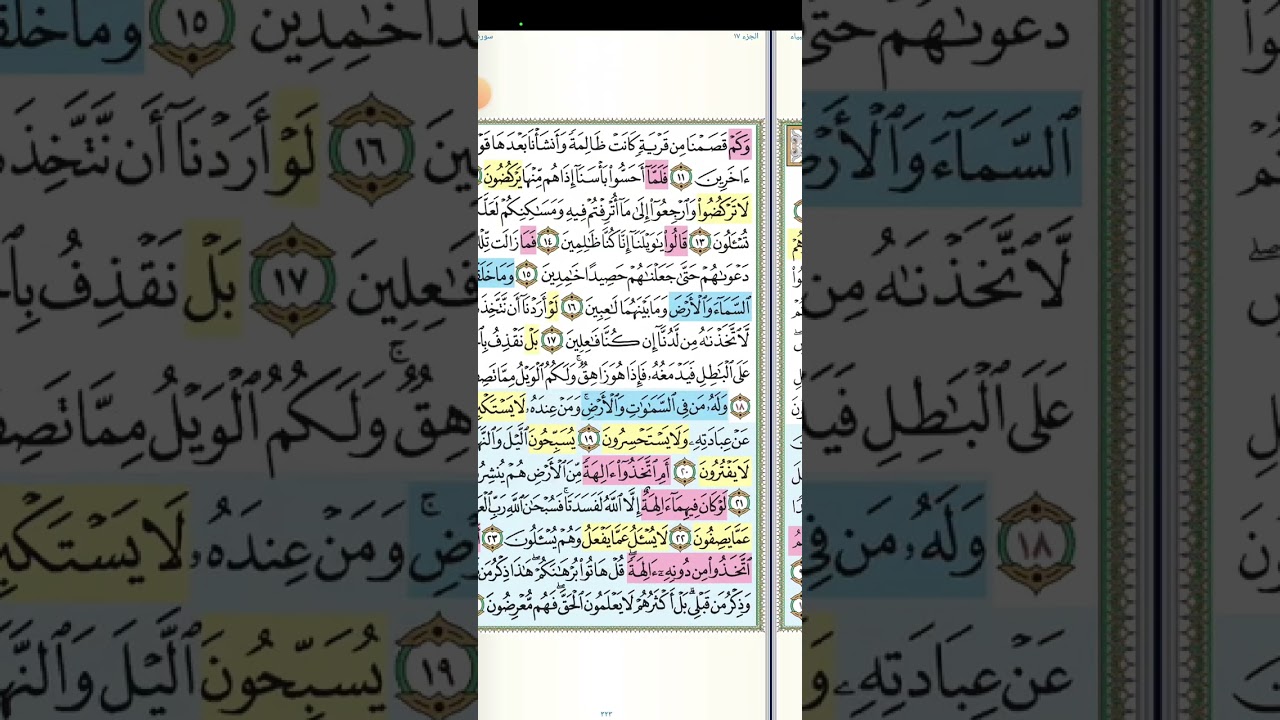 الجزء ١٧
سورة
وَكَمْ قَصَمْنَا مِن قَرْيَةٍ كَانَتْ ظَالِمَةً وَأَنشَأْنَا بَعْدَهَا قَوْ
ءَاخَرِينَ ١١ فَلَمَّآ أَحَسُّوا۟ بَأْسَنَآ إِذَا هُم مِّنْهَا يَرْكُضُونَ
لَا تَرْكُضُوا۟ وَٱرْجِعُوٓا۟ إِلَىٰ مَآ أُتْرِفْتُمْ فِيهِ وَمَسَـٰكِنِكُمْ لَعَلَّ
تُسْـَٔلُونَ ١٣ قَالُوا۟ يَـٰوَيْلَنَآ إِنَّا كُنَّا ظَـٰلِمِينَ ١٤ فَمَا زَالَت تِّلْ
دَعْوَىٰهُمْ حَتَّىٰ جَعَلْنَـٰهُمْ حَصِيدًا خَـٰمِدِينَ ١٥ وَمَا خَلَقْ
ٱلسَّمَآءَ وَٱلْأَرْضَ وَمَا بَيْنَهُمَا لَـٰعِبِينَ ١٦ لَوْ أَرَدْنَآ أَن نَّتَّخِذَ
لَّٱتَّخَذْنَـٰهُ مِن لَّدُنَّآ إِن كُنَّا فَـٰعِلِينَ ١٧ بَلْ نَقْذِفُ بِٱلْ
عَلَى ٱلْبَـٰطِلِ فَيَدْمَغُهُۥ فَإِذَا هُوَ زَاهِقٌ ۚ وَلَكُمُ ٱلْوَيْلُ مِمَّا تَصِفُ
١٨ وَلَهُۥ مَن فِى ٱلسَّمَـٰوَٰتِ وَٱلْأَرْضِ ۚ وَمَنْ عِندَهُۥ لَا يَسْتَكْبِ
عَنْ عِبَادَتِهِۦ وَلَا يَسْتَحْسِرُونَ ١٩ يُسَبِّحُونَ ٱلَّيْلَ وَٱلنَّهَ
لَا يَفْتُرُونَ ٢٠ أَمِ ٱتَّخَذُوٓا۟ ءَالِهَةً مِّنَ ٱلْأَرْضِ هُمْ يُنشِرُ
٢١ لَوْ كَانَ فِيهِمَآ ءَالِهَةٌ إِلَّا ٱللَّهُ لَفَسَدَتَا ۚ فَسُبْحَـٰنَ ٱللَّهِ رَبِّ ٱلْعَ
عَمَّا يَصِفُونَ ٢٢ لَا يُسْـَٔلُ عَمَّا يَفْعَلُ وَهُمْ يُسْـَٔلُونَ ٢٣
ٱتَّخَذُوا۟ مِن دُونِهِۦٓ ءَالِهَةً ۖ قُلْ هَاتُوا۟ بُرْهَـٰنَكُمْ ۖ هَـٰذَا ذِكْرُ مَن
وَذِكْرُ مَن قَبْلِى ۗ بَلْ أَكْثَرُهُمْ لَا يَعْلَمُونَ ٱلْحَقَّ ۖ فَهُم مُّعْرِضُونَ
٣٢٣